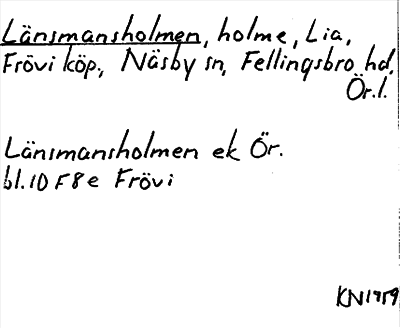 Länsmansholmen, holme, Lia,
Frövi köp., Näsby sn, Fellingsbro hd,
Ör.l.
Länsmansholmen ek Ör.
bl. 10 F 8 e Frövi
KN 1959